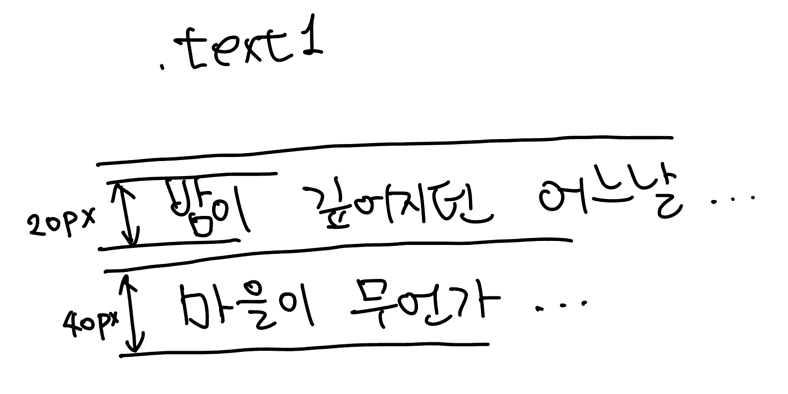 .text1
20px 밤이 깊어지던 어느날 ...
40px 마을이 무언가 ...